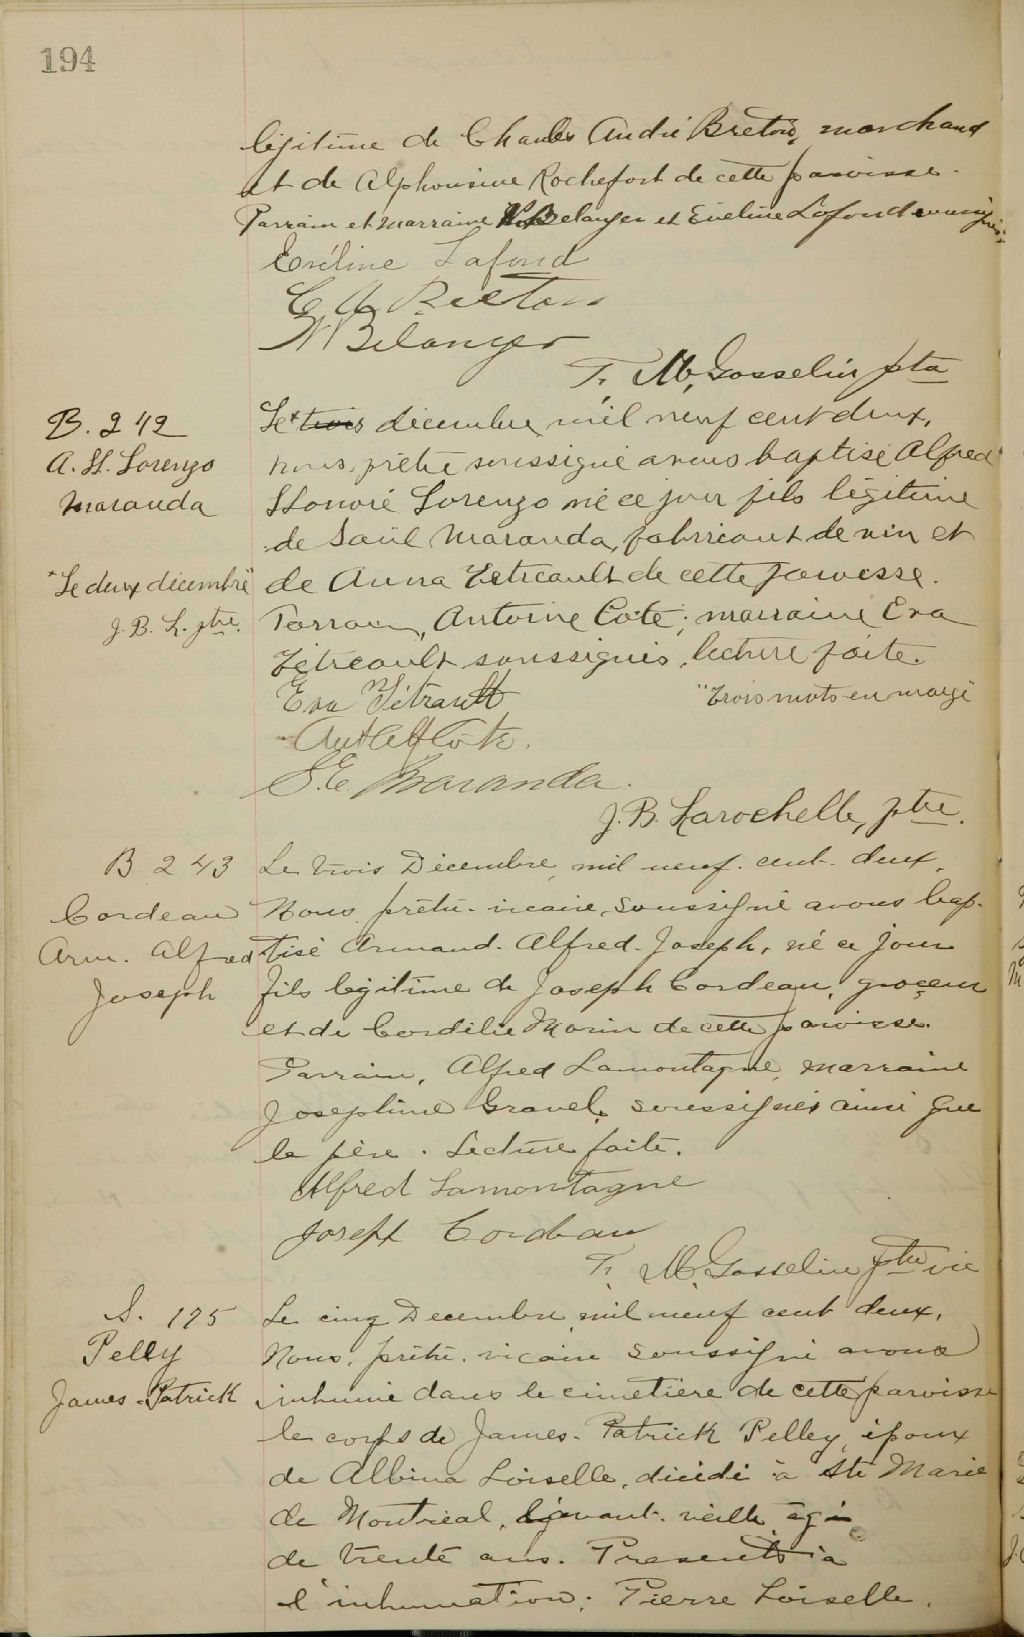 194
légitime de Charles André Breton, marchand
et de Alphonsine Rochefort de cette paroisse.
Parrain et marraine Belanger et Eveline Lafond soussignés.
Eveline Lafond
C A Breton
N Belanger
F. M. Gosselin ptre
B. 242
A. H. Lorenzo
Maranda
Le* trois décembre mil neuf cent deux,
nous, prêtre soussigné avons baptisé Alfred
Honoré Lorenzo né ce jour fils légitime
de Saül Maranda, fabricant de vin et
*Le deux décembre"
J. B. L. ptre.
de Anna Tetreault de cette paroisse.
Parrain, Antoine Coté; marraine Eva
Tétreault soussignés, lecture faite.
Eva Tétrault
"Trois mots en marge"
Côté.
S. E. Maranda.
J. B. Larochelle, ptre.
B 243
Cordeau
Arm. Alfred
Joseph
Le trois Décembre, mil neuf. cent. deux,
Nous, prêtre. vicaire, soussigné avons bap-
tisé Armand. Alfred. Joseph, né ce jour
fils légitime de Joseph Cordeau, groçeur
et de Cordélie Morin de cette paroisse.
Parrain, Alfred Lamontagne, marraine
Josephine Gravel, soussignés ainsi que
le père. Lecture faite.
Alfred Lamontagne
Joseph Cordeau
F. M. Gosselin ptre vic
S. 125
Pelly
James-Patrick
Le cinq Decembre, mil neuf cent deux,
Nous, prêtre. vicaire soussigné avons
inhumé dans le cimetière de cette paroisse
le corps de James-Patrick Pelley, époux
de Albina Loiselle, décédé à Ste Marie
de Montreal, l'avant-veille, âgé
de trente ans. Presents à
l'inhumation: Pierre Loiselle,